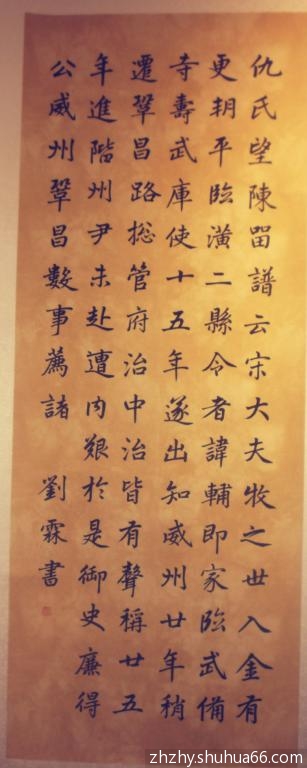 仇氏望陳畱譜云宋大夫牧之世入金有
更朝平臨潢二縣令者諱輔即家臨武備
寺壽武庫使十五年遂出知威州廿年稍
遷鞏昌路捴管府治中治皆有聲稱廿五
年進階州尹未赴遭内艱於是御史廉得
公威州鞏昌數事薦諸 劉霖書
zhzhy.shuhua66.com